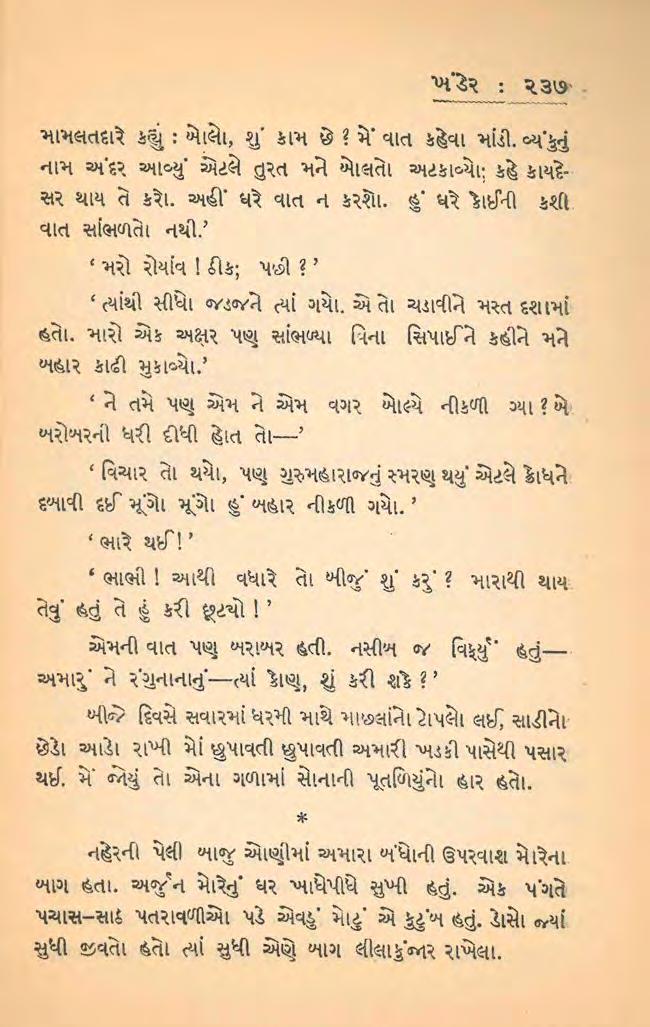 ખંડેર : ૨૩૭
મામલતદારે કહ્યું : બોલો, શું કામ છે ? મેં વાત કહેવા માંડી. વ્યંકુનું
નામ અંદર આવ્યું એટલે તુરત મને બોલતો અટકાવ્યો; કહે કાયદે-
સર થાય તે કરો. અહીં ઘરે વાત ન કરશો. હું ઘરે કોઈની કશી
વાત સાંભળતો નથી.’
‘ મરો રોયાંવ ! ઠીક; પછી ? ’
‘ ત્યાંથી સીધો જડજને ત્યાં ગયો. એ તો ચડાવીને મસ્ત દશામાં
હતો. મારો એક અક્ષર પણ સાંભળ્યા વિના સિપાઈને કહીને મને
બહાર કાઢી મુકાવ્યો.’
‘ ને તમે પણ એમ ને એમ વગર બોલ્યે નીકળી ગ્યા ? બે
બરોબરની ધરી દીધી હોત તો—’
‘ વિચાર તો થયો, પણ ગુરુમહારાજનું સ્મરણ થયું એટલે ક્રોધને
દબાવી દઈ મૂંગો મૂંગો હું બહાર નીકળી ગયો. ’
‘ ભારે થઈ ! ’
‘ ભાભી ! આથી વધારે તો બીજું શું કરું ? મારાથી થાય
તેવું હતું તે હું કરી છૂટ્યો ! ’
એમની વાત પણ બરાબર હતી. નસીબ જ વિફર્યું હતું—
અમારું ને રંગુનાનાનું—ત્યાં કોણ, શું કરી શકે ? ’
બીજે દિવસે સવારમાં ધરમી માથે માછલાંનો ટોપલો લઈ, સાડીનો
છેડો આડો રાખી મોં છુપાવતી છુપાવતી અમારી ખડકી પાસેથી પસાર
થઈ. મેં જોયું તો એના ગળામાં સોનાની પૂતળિયુંનો હાર હતો.
*
નહેરની પેલી બાજુ ઓણીમાં અમારા બંધોની ઉપરવાશ મોરેના
બાગ હતા. અર્જુન મોરેનું ઘર ખાધેપીધે સુખી હતું. એક પંગતે
પચાસ–સાઠ પતરાવળીઓ પડે એવડું મોટું એ કુટુંબ હતું. ડોસો જ્યાં
સુધી જીવતો હતો ત્યાં સુધી એણે બાગ લીલાકુંજાર રાખેલા.